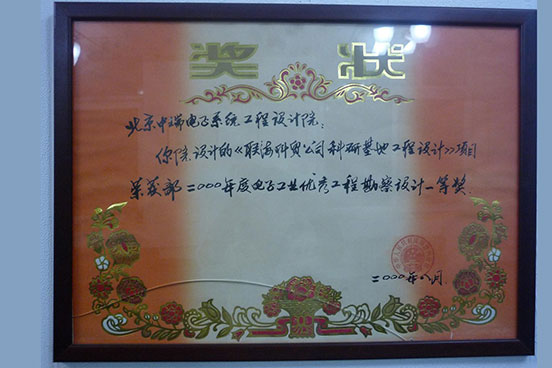 奖 状
北京中瑞电子系统工程设计院:
你院设计的《联海科贸公司科研基地工程设计》项目
荣获部二000年度电子工业优秀工程勘察设计一等奖
二000年八月